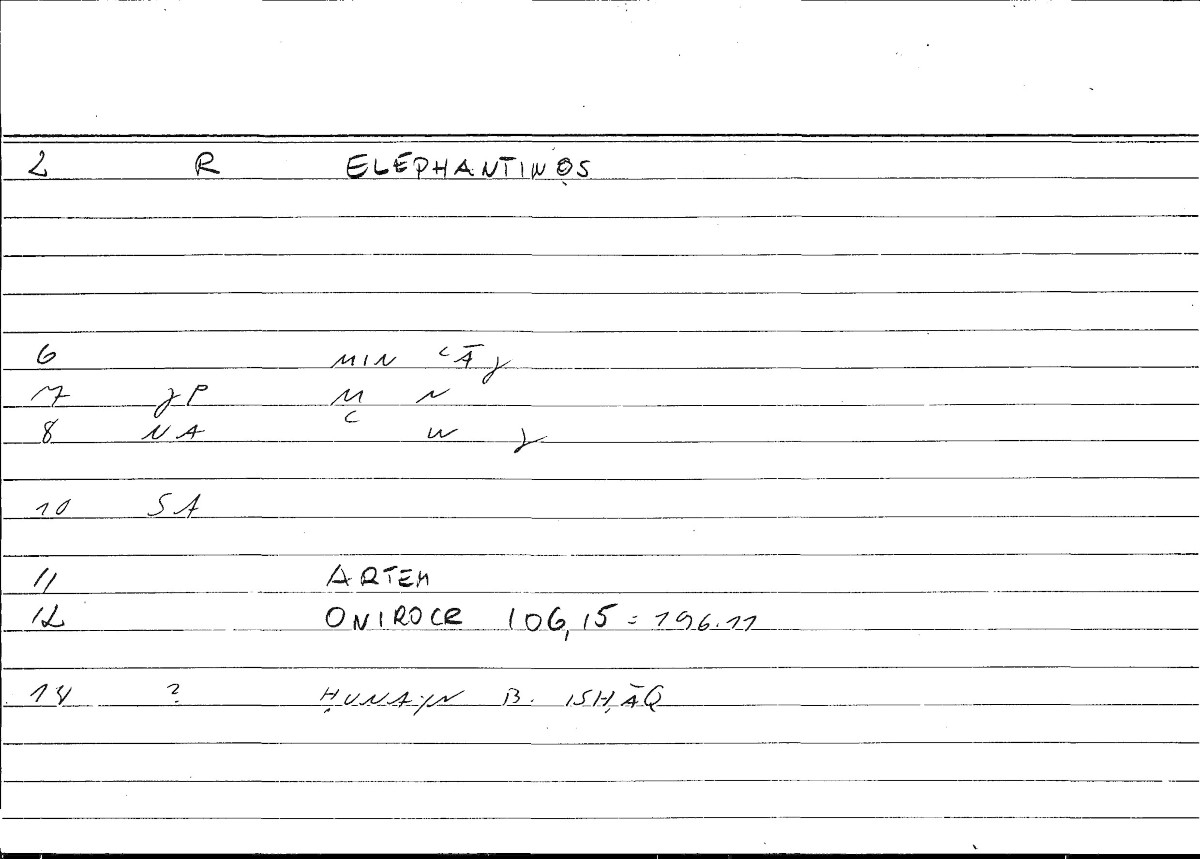 2 R ELEPHANTINOS
6 MIN ʿĀǧ
7 ǧP M N
8 NA ʿ W ǧ
10 SA
11 ARTEM
12 ONIROCR 106,15 = 196.11
14 ? ḤUNAYN B. ISḤĀQ